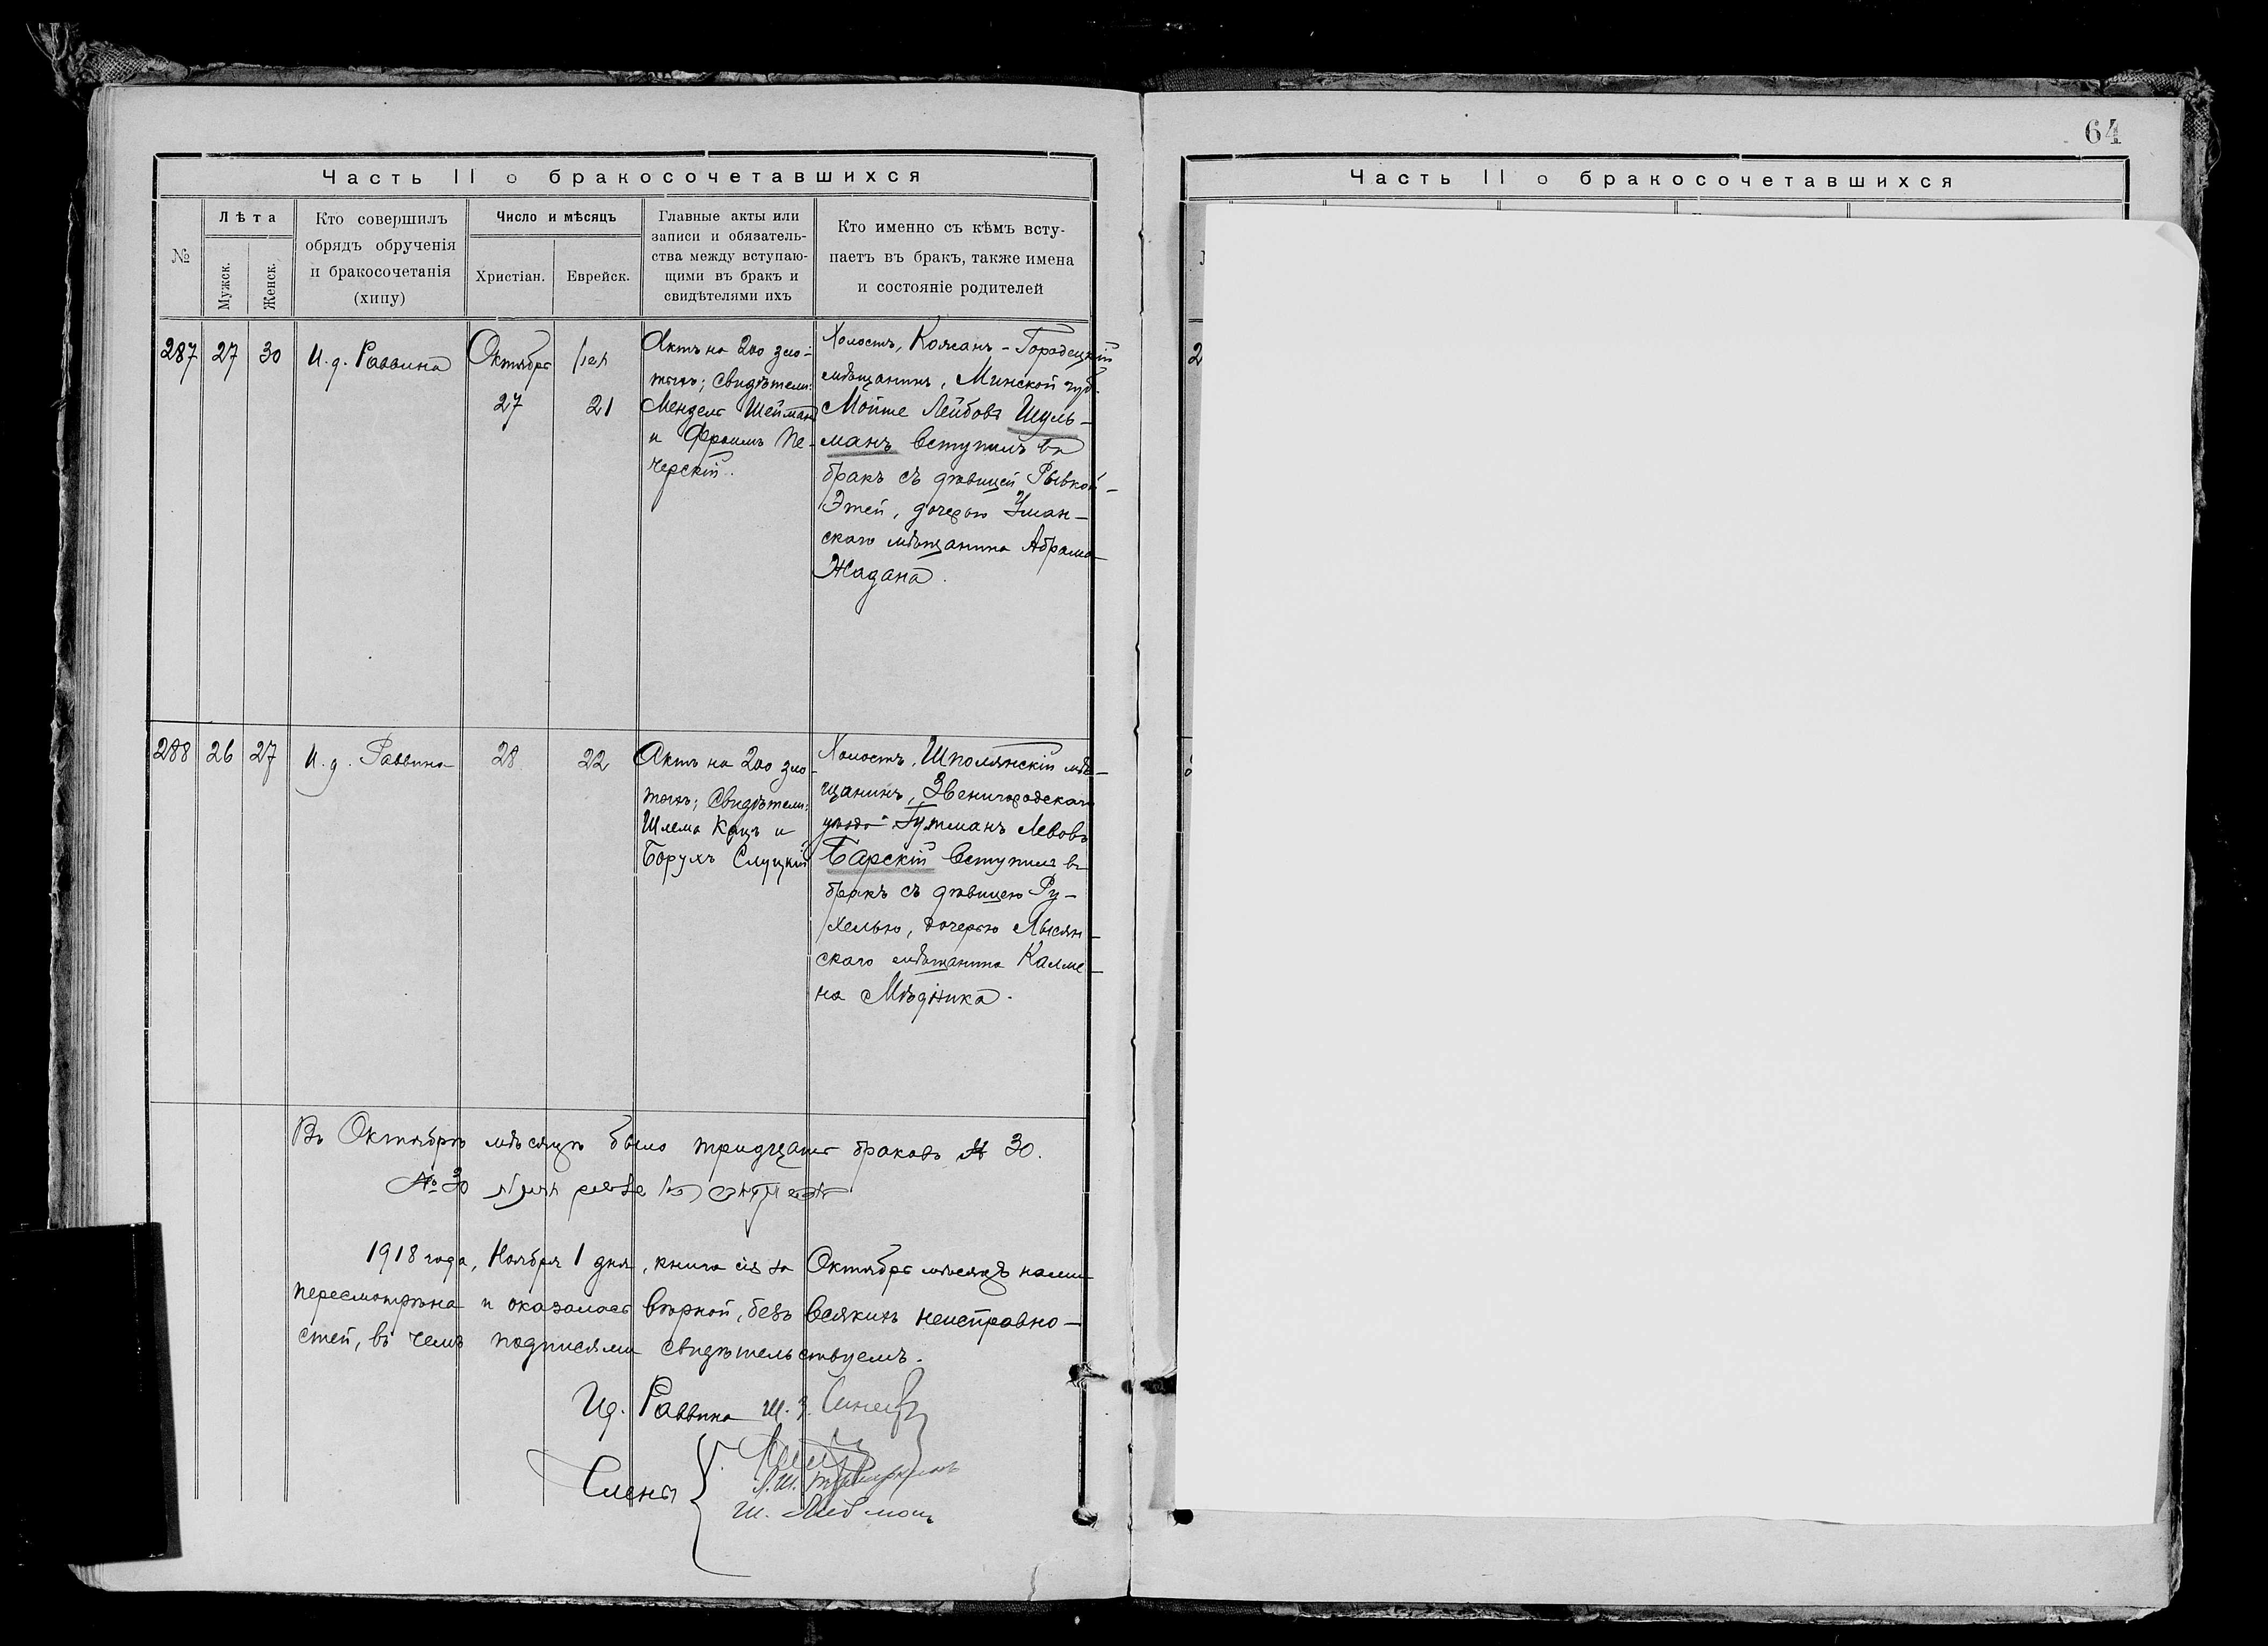 64
Часть II о бракосочетавшихся
№
Лѣта
Мужск.
Женск.
Кто совершилъ
обрядъ обрученія
и бракосочетанія
(хипу)
Число и мѣсяцъ
Христіан.
Еврейск.
Главные акты или
записи и обязатель-
ства между вступаю-
щими въ бракъ и
свидѣтелями ихъ
Кто именно съ кѣмъ всту-
паетъ въ бракъ, также имена
и состояніе родителей
287
27
30
И. д. Раввина
Октябрь
27
21
Актъ на 200 зло-
тыхъ; Свидѣтели:
Мендель Шейман
и Фроимъ Пе-
черскій.
Холостъ, Кожанъ-Городецкій
мѣщанинъ, Минской губ.
Мойше Лейбовъ Шуль-
манъ вступилъ въ
бракъ съ дѣвицей Рывкой-
Этей, дочерью Уман-
скаго мѣщанина Абрама
Жадана.
288
26
27
И. д. Раввина
28
22
Актъ на 200 зло-
тыхъ; Свидѣтели:
Шлема Кацъ и
Борухъ Слуцкій
Холостъ, Шполянскій мѣ-
щанинъ, Звенигородскаго
уѣзда Гутманъ Левовъ
Барскій вступилъ въ
бракъ съ дѣвицею Ру-
хелью, дочерью Лысян-
скаго мѣщанина Калме-
на Мѣдника.
Въ Октябрѣ мѣсяцѣ было тридцать браковъ № 30.
№ 30
1918 года, Ноября 1 дня, книга сія за Октябрь мѣсяцъ нами
пересмотрѣна и оказалась вѣрной, безъ всякихъ неисправно-
стей, въ чемъ подписями свидѣтельствуемъ.
Ид. Раввина Ш. З.
Члены
Часть II о бракосочетавшихся